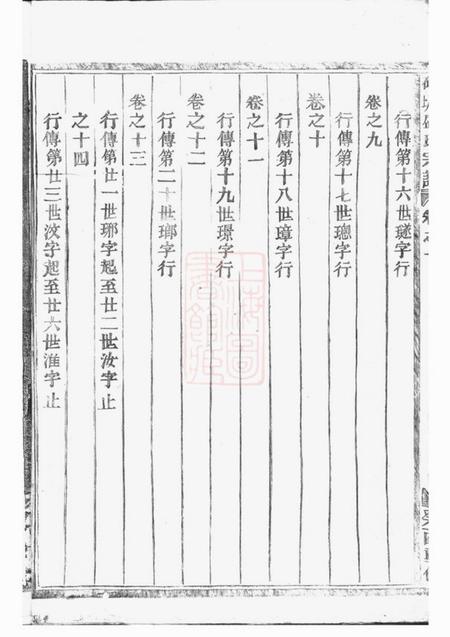 行傳第十六世璲字行
卷之九
行傳第十七世璁字行
卷之十
行傳第十八世璋字行
卷之十一
行傳第十九世璟字行
卷之十二
行傳第二十世瑯字行
卷之十三
行傳第廿一世琊字起至廿二世汝字止
之十四
行傳第廿三世汶字起至廿六世淮字止